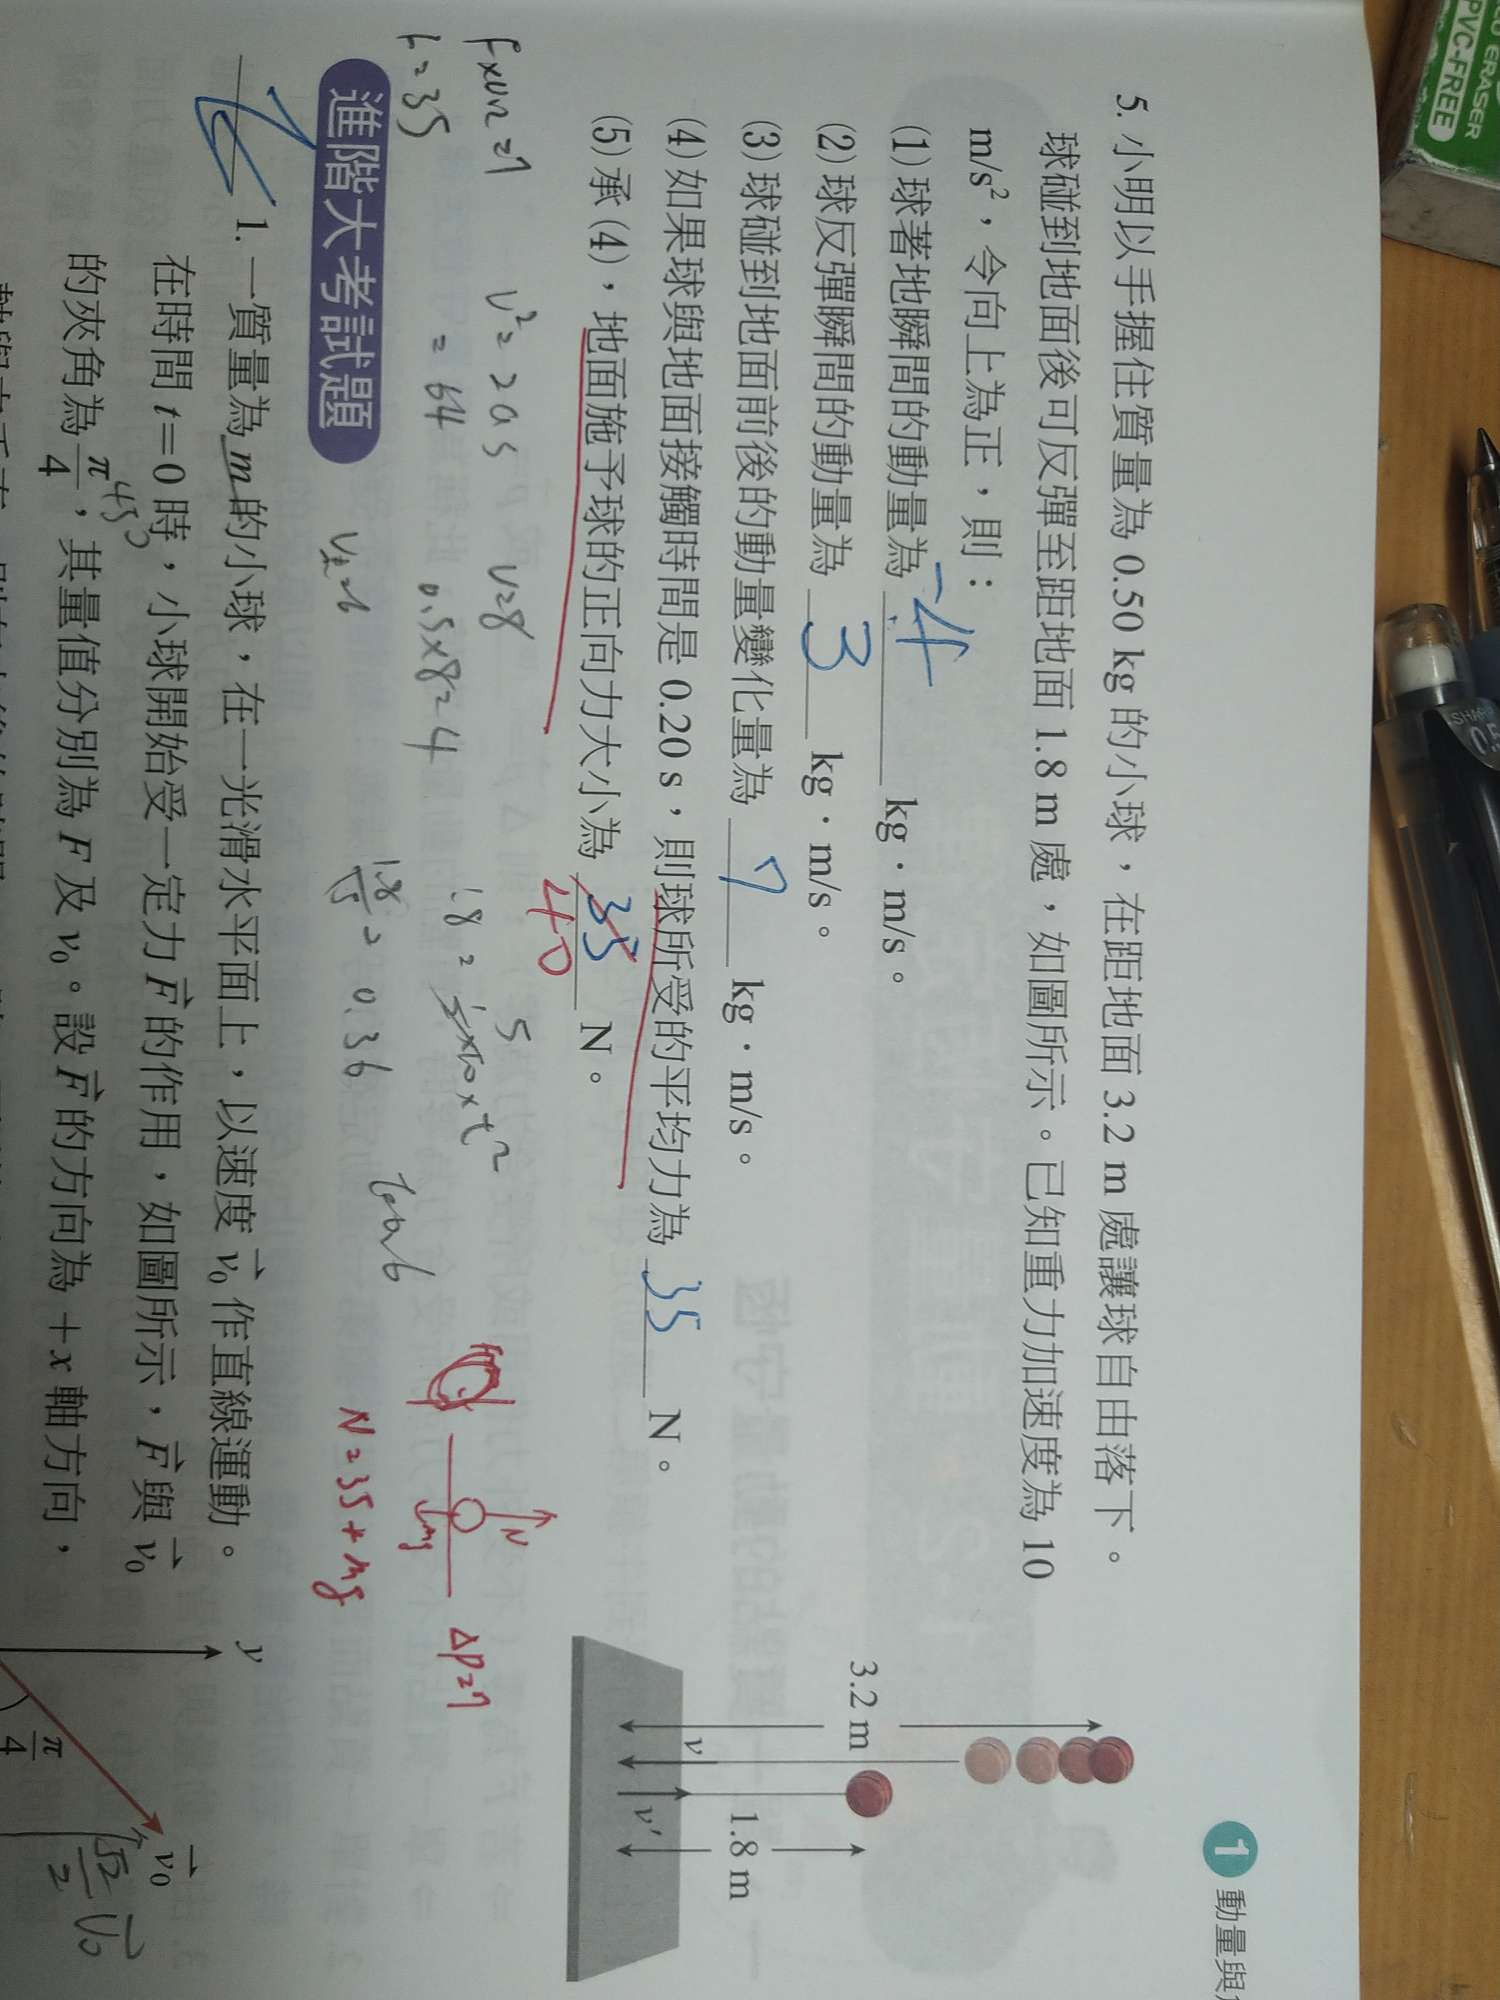 5. 小明以手握住質量為 0.50 kg 的小球，在距地面 3.2 m 處讓球自由落下。
球碰到地面後可反彈至距地面 1.8 m 處，如圖所示。已知重力加速度為 10
m/s²，令向上為正，則：
(1)球著地瞬間的動量為 -4 kg·m/s。
(2)球反彈瞬間的動量為 3 kg·m/s。
(3)球碰到地面前後的動量變化量為 7 kg·m/s。
(4)如果球與地面接觸時間是 0.20 s，則球所受的平均力為 35 N。
(5)承(4)，地面施予球的正向力大小為 35 N。
40
3.2 m
v
v'
1.8 m
v²=2as v=8
=64 0.5×8=4
1.8=½×10×t²
5
=0.36
N
mg
Δp=7
N=35+mg
進階大考試題
1. 一質量為 m 的小球，在一光滑水平面上，以速度 v⃗₀ 作直線運動。
在時間 t=0 時，小球開始受一定力 F⃗ 的作用，如圖所示，F⃗ 與 v⃗₀
的夾角為 π/4，其量值分別為 F 及 v₀。設 F⃗ 的方向為 +x 軸方向，
45°
y
π/4
v⃗₀
√2/2 v⃗₀
1 動量與
ERASER
PVC-FREE
SHARP
0.5